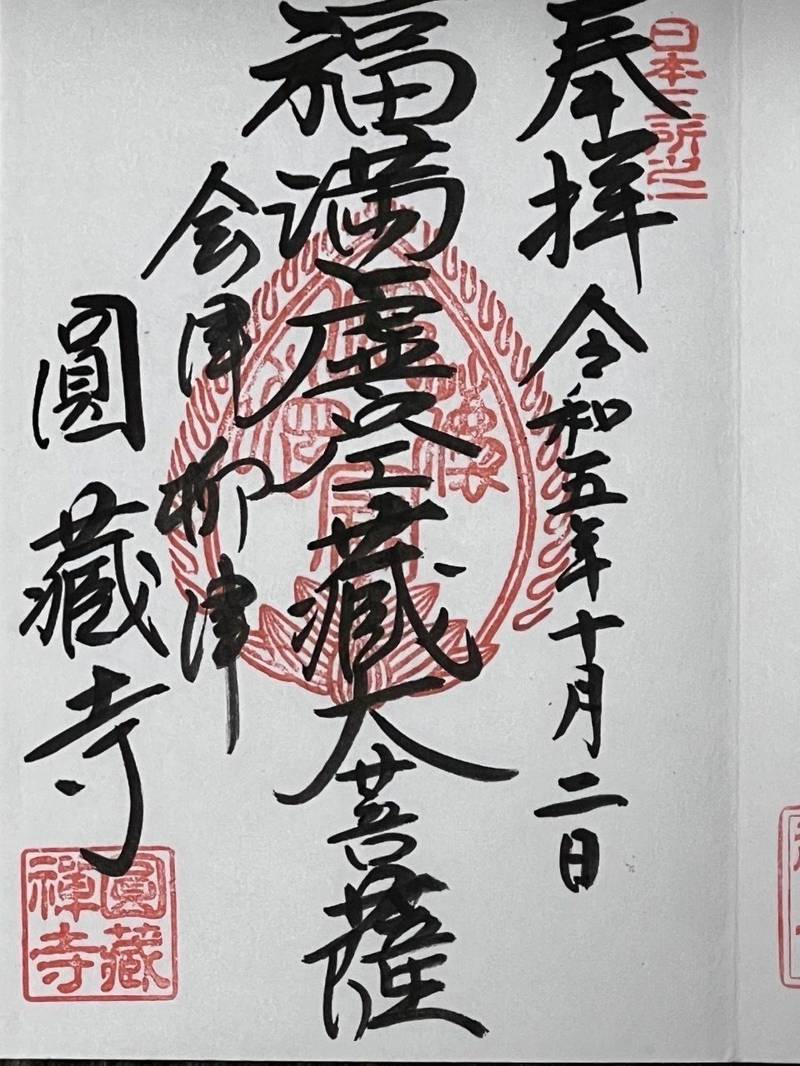 日本三所之一
奉拝 令和五年十月二日
福満虚空藏大菩薩
会津柳津
圓藏寺
圓藏
禅寺